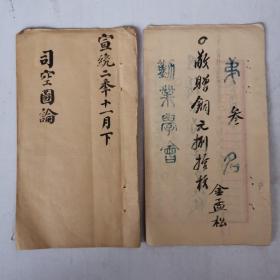 宣統二年十一月下
司空圖論
弟叁名
敬贈銅元捌拾枚
勸業學會
金孟松